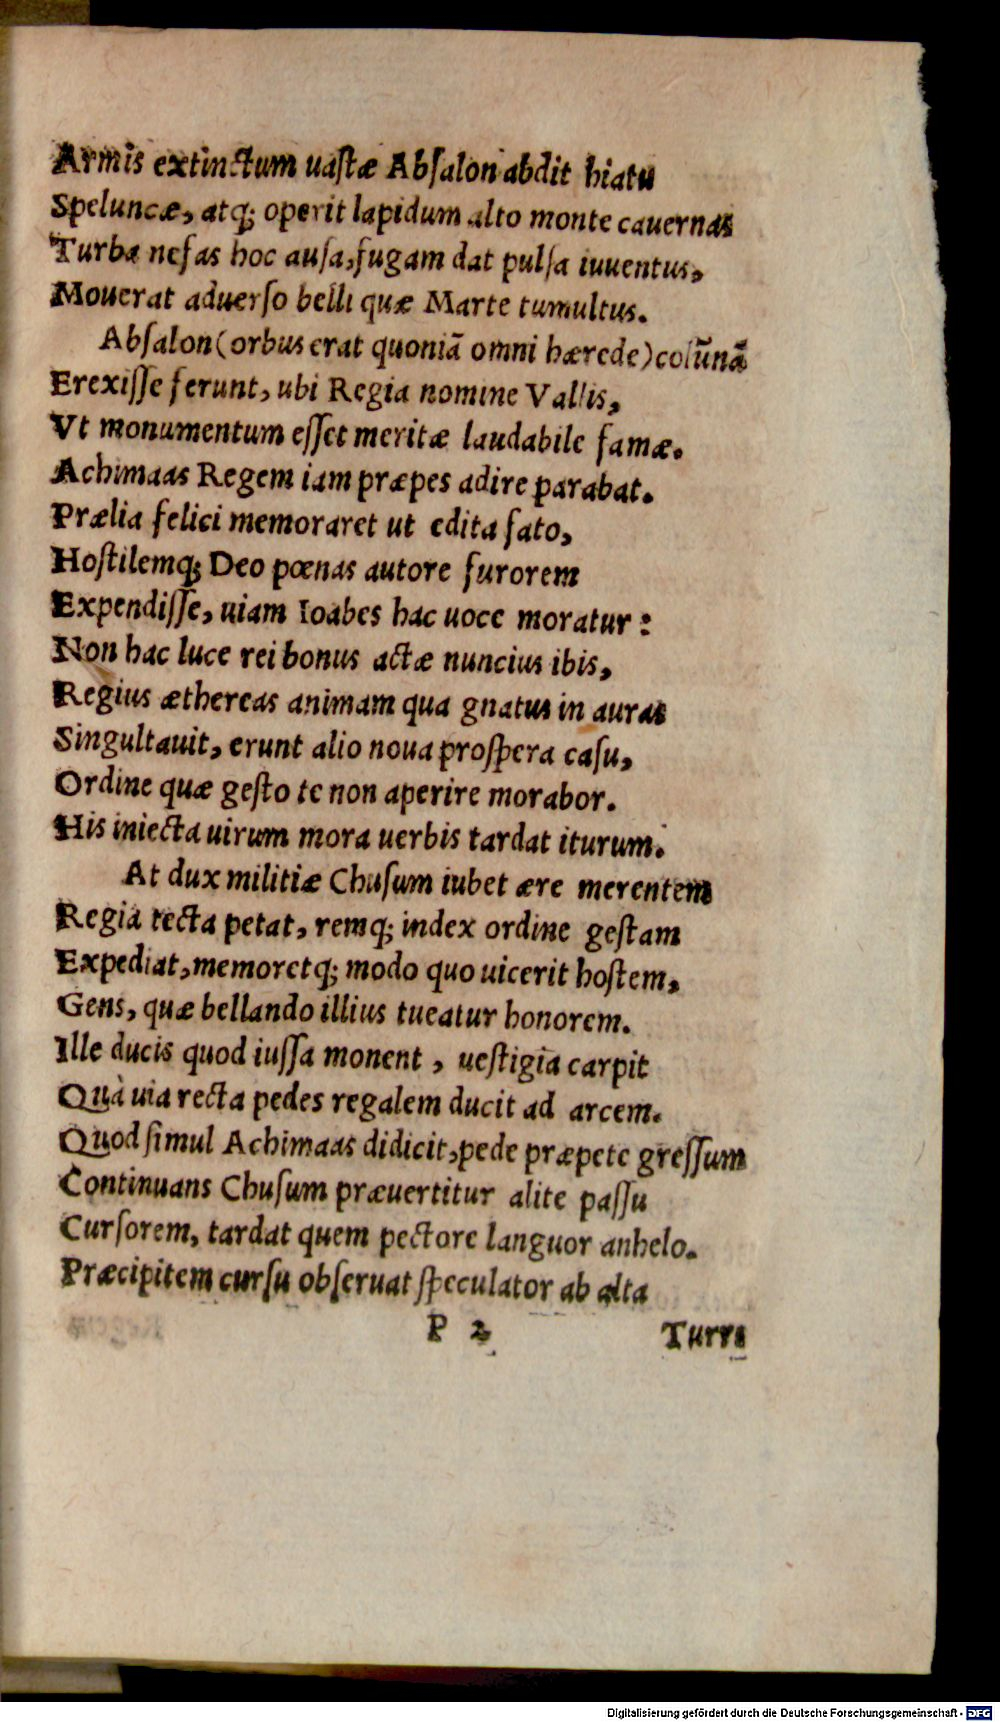 Armis extinctum uastæ Absalon abdit hiatu
Speluncæ, atq; operit lapidum alto monte cauernas
Turba nefas hoc ausa, fugam dat pulsa iuuentus,
Mouerat aduerso belli quæ Marte tumultus.
Absalon (orbus erat quoniã omni hærede) colũnã
Erexisse ferunt, ubi Regia nomine Vallis,
Vt monumentum esset meritæ laudabile famæ.
Achimaas Regem iam præpes adire parabat.
Prælia felici memoraret ut edita fato,
Hostilemq; Deo pœnas autore furorem
Expendisse, uiam Ioabes hac uoce moratur:
Non hac luce rei bonus actæ nuncius ibis,
Regius æthereas animam qua gnatus in auras
Singultauit, erunt alio noua prospera casu,
Ordine quæ gesto te non aperire morabor.
His iniecta uirum mora uerbis tardat iturum.
At dux militiæ Chusum iubet ære merentem
Regia tecta petat, remq; index ordine gestam
Expediat, memoretq; modo quo uicerit hostem,
Gens, quæ bellando illius tueatur honorem.
Ille ducis quod iussa monent, uestigia carpit
Quà uia recta pedes regalem ducit ad arcem.
Quod simul Achimaas didicit, pede præpete gressum
Continuans Chusum præuertitur alite passu
Cursorem, tardat quem pectore languor anhelo.
Præcipitem cursu obseruat speculator ab alta
P 2 Turri
Digitalisierung gefördert durch die Deutsche Forschungsgemeinschaft - DFG